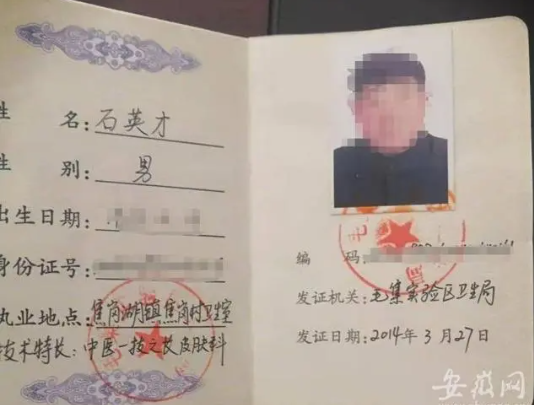 姓 名:石英才
性 别: 男
出生日期:
身份证号:
执业地点:焦岗湖镇焦岗村卫生室
技术特长:中医一技之长皮肤科
编 码:
发证机关:毛集实验区卫生局
发证日期:2014年3月27日
安徽网